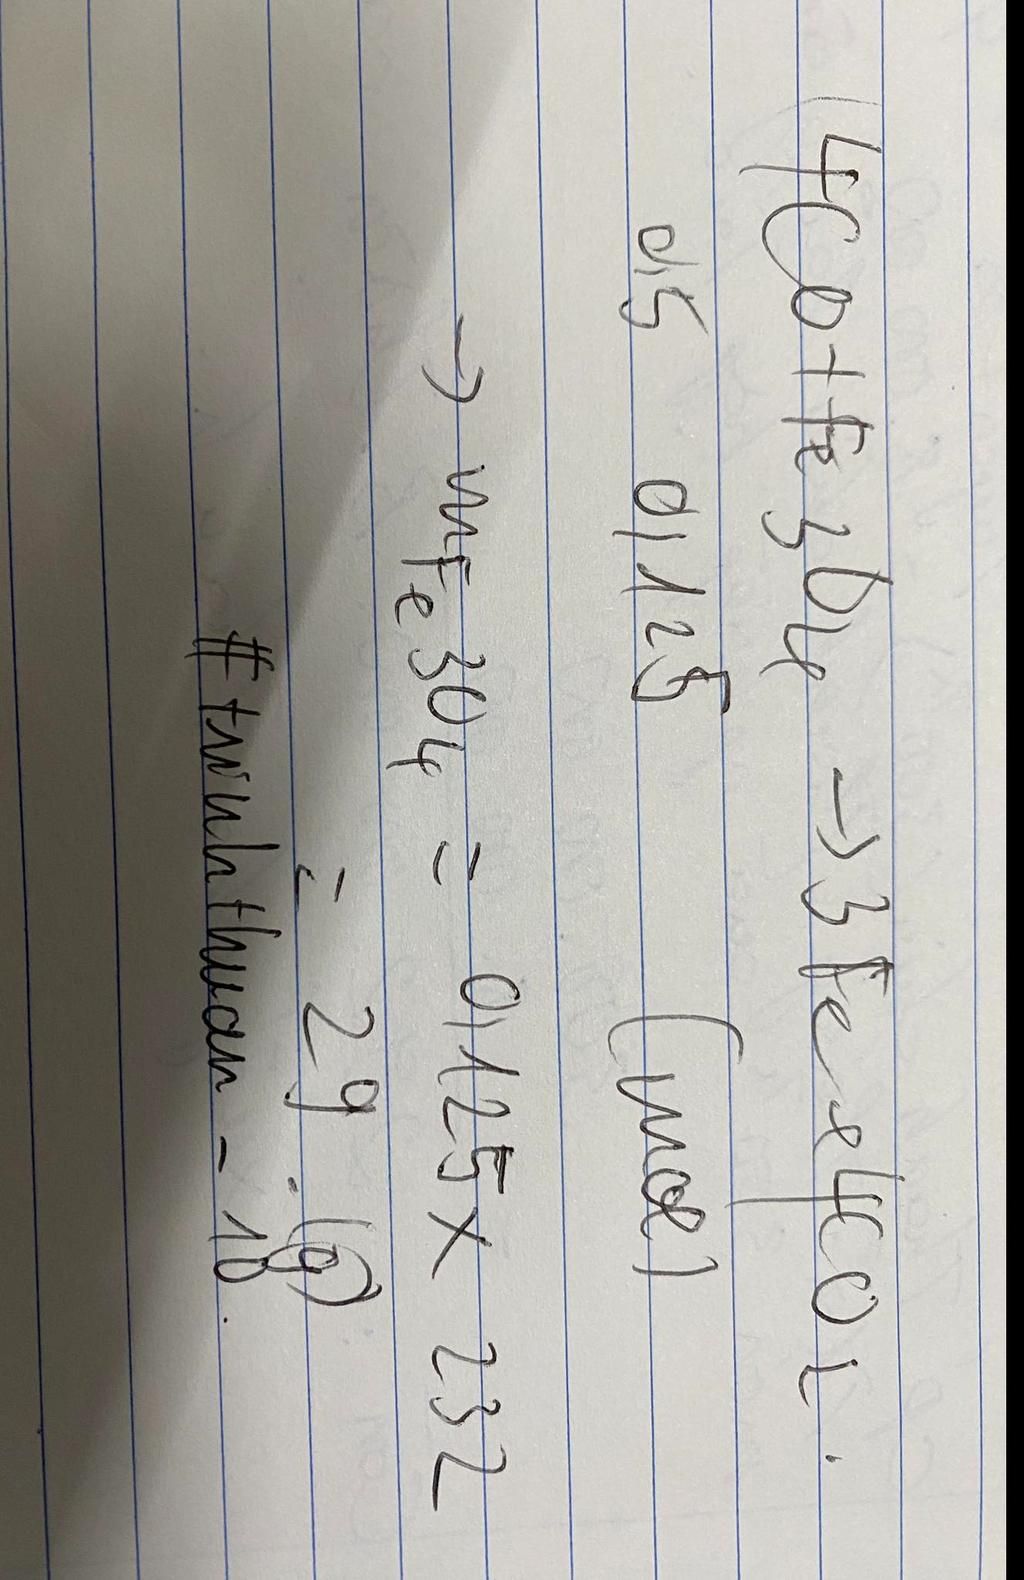 4CO + Fe3O4 → 3Fe + 4CO2.
0,5 0,125 (mol)
→ mFe3O4 = 0,125 x 232
= 29 (g)
#trinhthuan - 18.